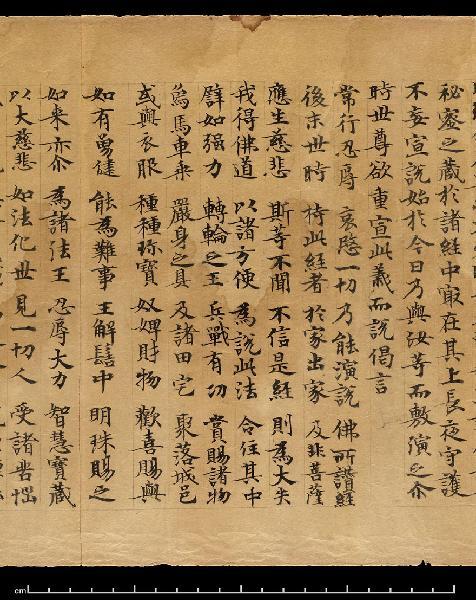 秘密之藏於諸經中㝡在其上長夜守護
不妄宣說始於今日乃與汝等而敷演之尒
時世尊欲重宣此義而說偈言
常行忍辱 哀愍一切 乃能演說 佛所讚經
後末世時 持此經者 於家出家 及非菩薩
應生慈悲 斯等不聞 不信是經 則為大失
我得佛道 以諸方便 為說此法 令住其中
譬如强力 轉輪之王 兵戰有功 賞賜諸物
象馬車乘 嚴身之具 及諸田宅 聚落城邑
或與衣服 種種珍寶 奴婢財物 歡喜賜與
如有勇健 能為難事 王解髻中 明珠賜之
如来亦尒 為諸法王 忍辱大力 智慧寶藏
以大慈悲 如法化世 見一切人 受諸苦惱
cm